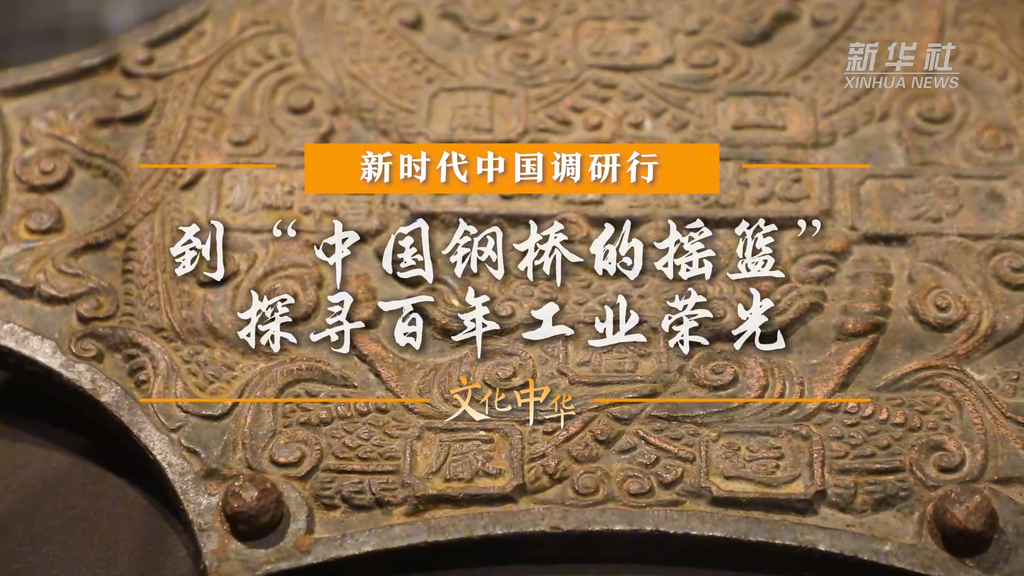 新华社
XINHUA NEWS
新时代中国调研行
到“中国钢桥的摇篮”
探寻百年工业荣光
文化中华
廠